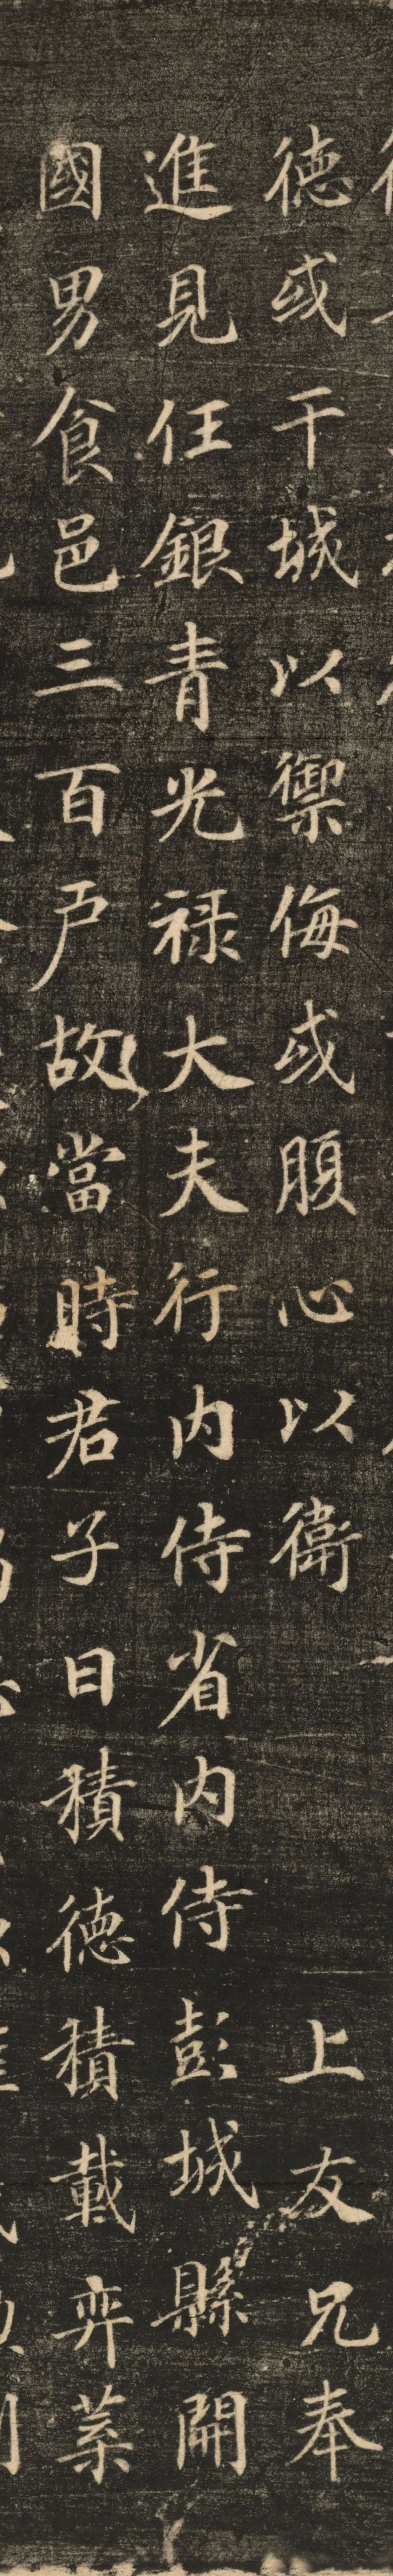 德或干城以禦侮或腹心以衛 上友兄奉
進見任銀青光祿大夫行内侍省内侍彭城縣開
國男食邑三百戶故當時君子曰積德積載弈葉